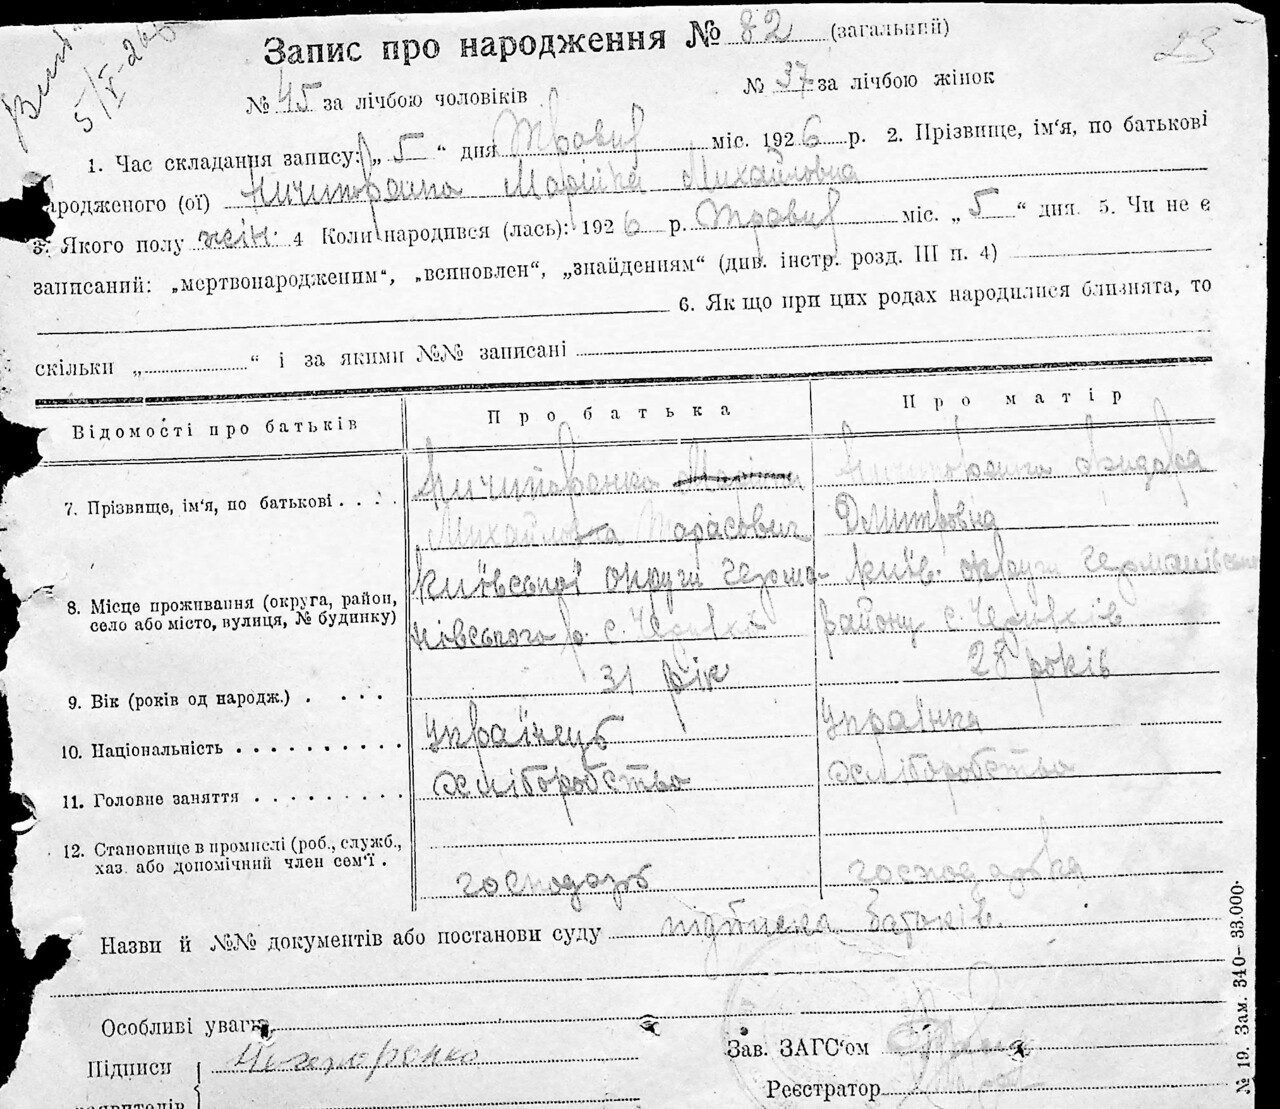 23
5/V-26
Запис про народження № 82 (загальний)
№ 45 за лічбою чоловіків № 37 за лічбою жінок
1. Час складання запису: „ 5 “ дня Травня міс. 1926 р. 2. Прізвище, ім‘я, по батькові
народженого (ої) Ничипоренко Марійка Михайловна
3. Якого полу жін. 4 Коли народився (лась): 1926 р. Травня міс. „ 5 “ дня. 5. Чи не є
записаний: „мертвонародженим“, „всиновлен“, „знайденням“ (див. інстр. розд. III п. 4)
6. Як що при цих родах народилися близнята, то
скільки „ “ і за якими №№ записані
Відомості про батьків Про батька Про матір
7. Прізвище, ім‘я, по батькові . . . . Ничипоренко Марійка Ничипоренко
Тарасович Дмитровна
8. Місце проживання (округа, район, село або місто, вулиця, № будинку) Київської округи Герма- Київ. округи Германівського
нівського р. с. району с.
9. Вік (років од народж.) . . . . 31 рік 28 років
10. Національність . . . . . . . . . . Українець Українка
11. Головне заняття . . . . . . . . . хліборобство хліборобство
12. Становище в промислі (роб., служб., хаз. або допомічний член сем‘ї . господарь господарка
Назви й №№ документів або постанови суду підписка батьків.
Особливі уваги
Підписи Ничипоренко Зав. ЗАГС‘ом
заявителів Реєстратор
№ 19. Зам. 340—33.000.